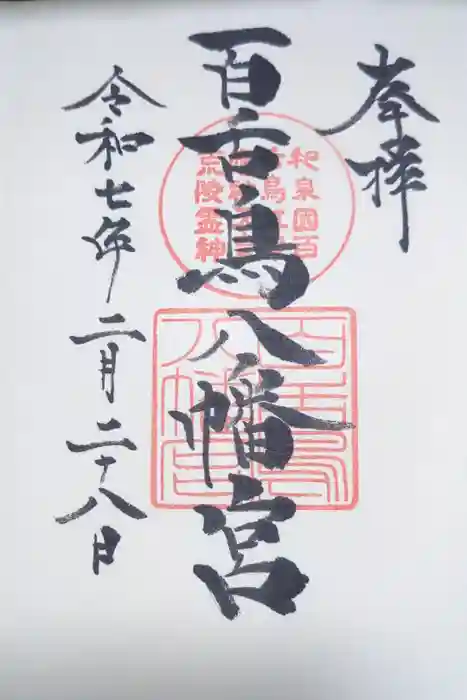 奉拝
百舌鳥八幡宮
令和七年二月二十八日
和泉国百
荒陵霊神
百舌鳥
八幡宮